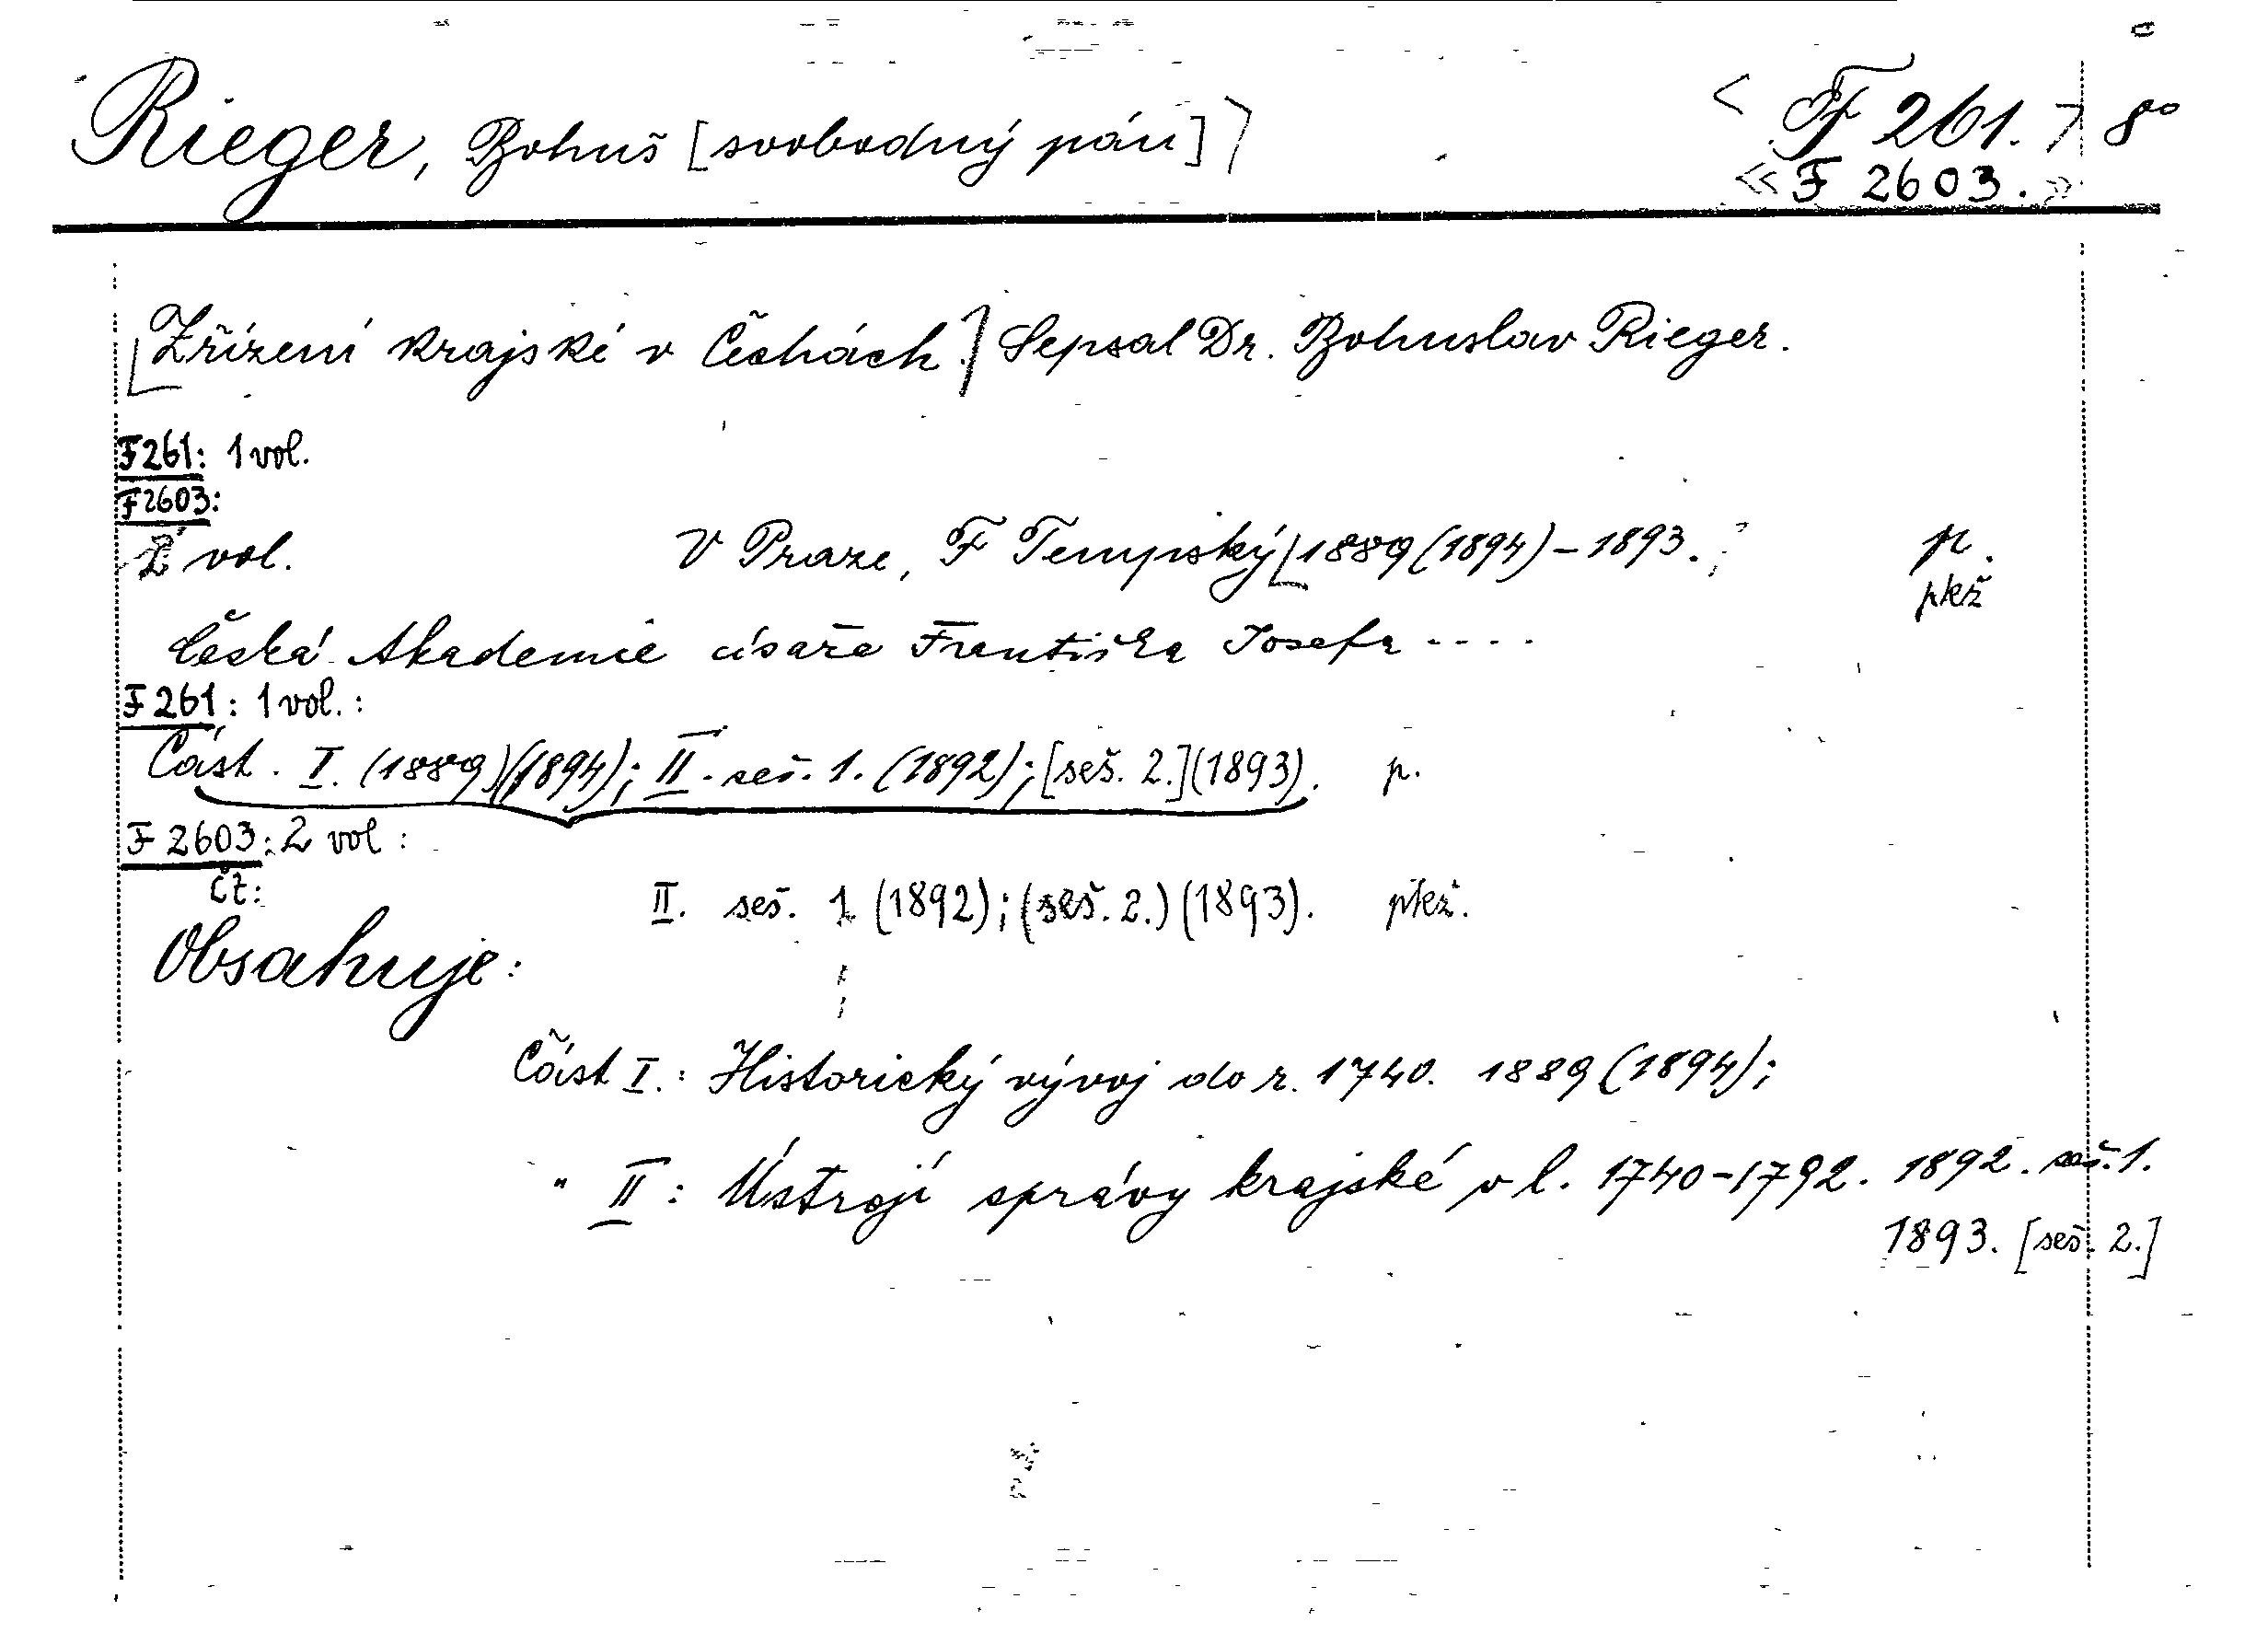 Rieger, Bohuš [svobodný pán] < F 261. > 8°
« F 2603. »
[Zřízení krajské v Čechách.] Sepsal Dr. Bohuslav Rieger.
F261: 1 vol.
F2603:
2 vol. V Praze, F Tempský [1889 (1894) - 1893. p.
pkž
Česká Akademie císaře Františka Josefa ....
F 261: 1 vol.:
Část. I. (1889)(1894); II. seš. 1. (1892); [seš. 2.](1893). p.
F 2603: 2 vol:
Čt: II. seš. 1 (1892); (seš. 2.) (1893). pkž.
Obsahuje:
Část I.: Historický vývoj do r. 1740. 1889 (1894);
" II: Ústrojí správy krajské v l. 1740-1792. 1892. seš. 1.
1893. [seš. 2.]